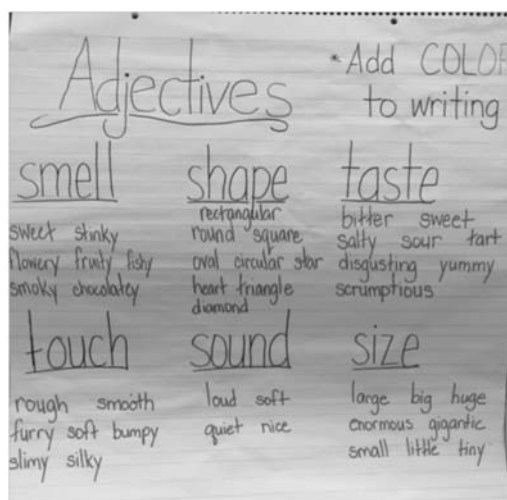 Adjectives
*Add COLOR
to writing
smell
sweet stinky
flowery fruity fishy
smoky chocolatey
shape
rectanglular
round square
oval circular star
heart triangle
diamond
taste
bitter sweet
salty sour tart
disgusting yummy
scrumptious
touch
rough smooth
furry soft bumpy
slimy silky
sound
loud soft
quiet nice
size
large big huge
enormous gigantic
small little tiny